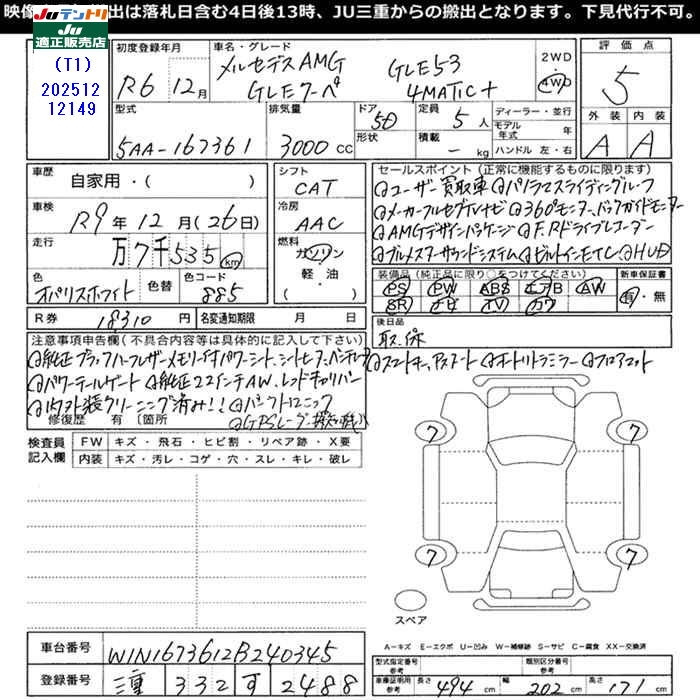 映像 出は落札日含む4日後13時、JU三重からの搬出となります。下見代行不可。
JUテントリ
JU
適正販売店
(T1)
202512
12149
初度登録年月
R6 12月
車名・グレード
メルセデスAMG GLE53
GLEクーペ 4MATIC+
2WD
4WD
評価点
5
外装 内装
A A
型式
5AA-167361
排気量
3000 CC
ドア
形状
5D
定員
5人
積載
- kg
ディーラー・並行
モデル
年式
年
ハンドル 左・右
車歴
自家用・( )
シフト
CAT
車検
R9年12月(26日)
冷房
AAC
走行
万7千535 km
燃料
ガソリン
軽・油
( )
色
オパリスホワイト
色替
色コード
885
R券 18310円
名変通知期限 月 日
セールスポイント(正常に機能するものに限ります)
ユーザー買取車 パノラミックスライディングルーフ
メーカーフルセグTVナビ 360°モニター、バックガイドモニター
AMGデザインパッケージ F.Rドライブレコーダー
ブルメスターサウンドシステム ビルトインETC HUD
装備品(純正品に限り○をつけてください)
PS PW ABS エアB AW
SR カワ TV
新車保証書
有・無
後日品
取、保
スマートキー、アスノート オートリトラミラー フロアマット
注意事項申告欄(不具合内容等は具体的に記入して下さい)
純正ブラックハーフレザーメモリー付パワーシート、シートヒーター、ベンチレーター
パワーテールゲート 純正22インチAW、レッドキャリパー
内外装クリーニング済み!!
GPSレーダー探知機
修復歴 有 〔箇所
検査員
記入欄
FW キズ・飛石・ヒビ割・リペア跡・X要
内装 キズ・汚レ・コゲ・穴・スレ・キレ・破レ
7 7
7 7
スペア
A−キズ E−エクボ U−凹み W−補修跡 S−サビ C−腐食 XX−交換済
車台番号 W1N1673612B240345
登録番号 三重 332 す 2488
型式指定番号
参考
類別区分番号
参考
車庫証明用
参考
長さ 494 cm
幅 202 cm
高さ 171 cm